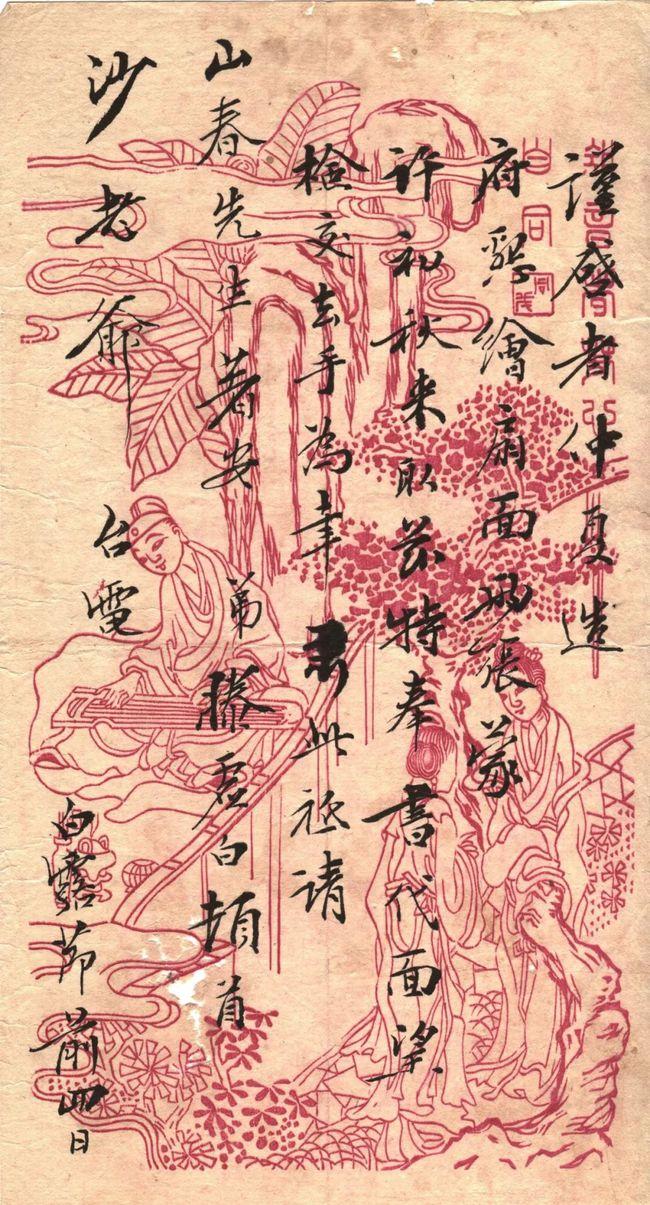 謹啓者仲夏造
府懇繪扇面兩張蒙
許初秋来取茲特奉書代面望
檢交去手為幸此祗請
山春先生著安 弟滕虛白頓首
沙老爺 台電
白露節前四日